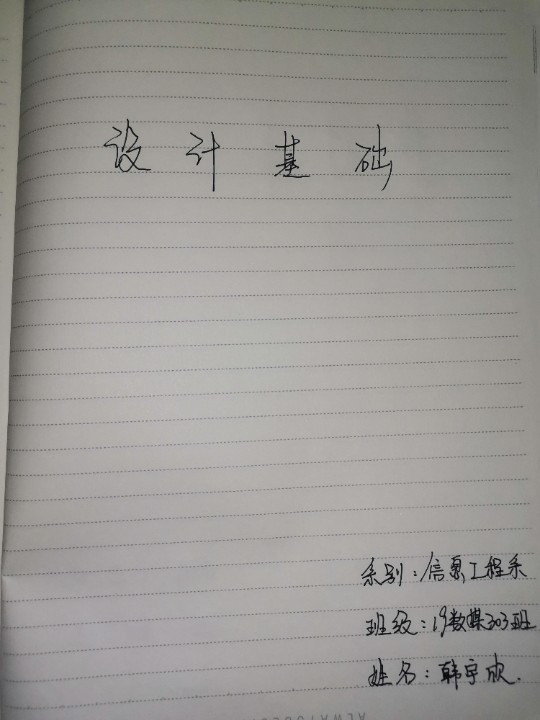 设计基础
系别:信息工程系
班级:19数媒303班
姓名:韩宇欣.